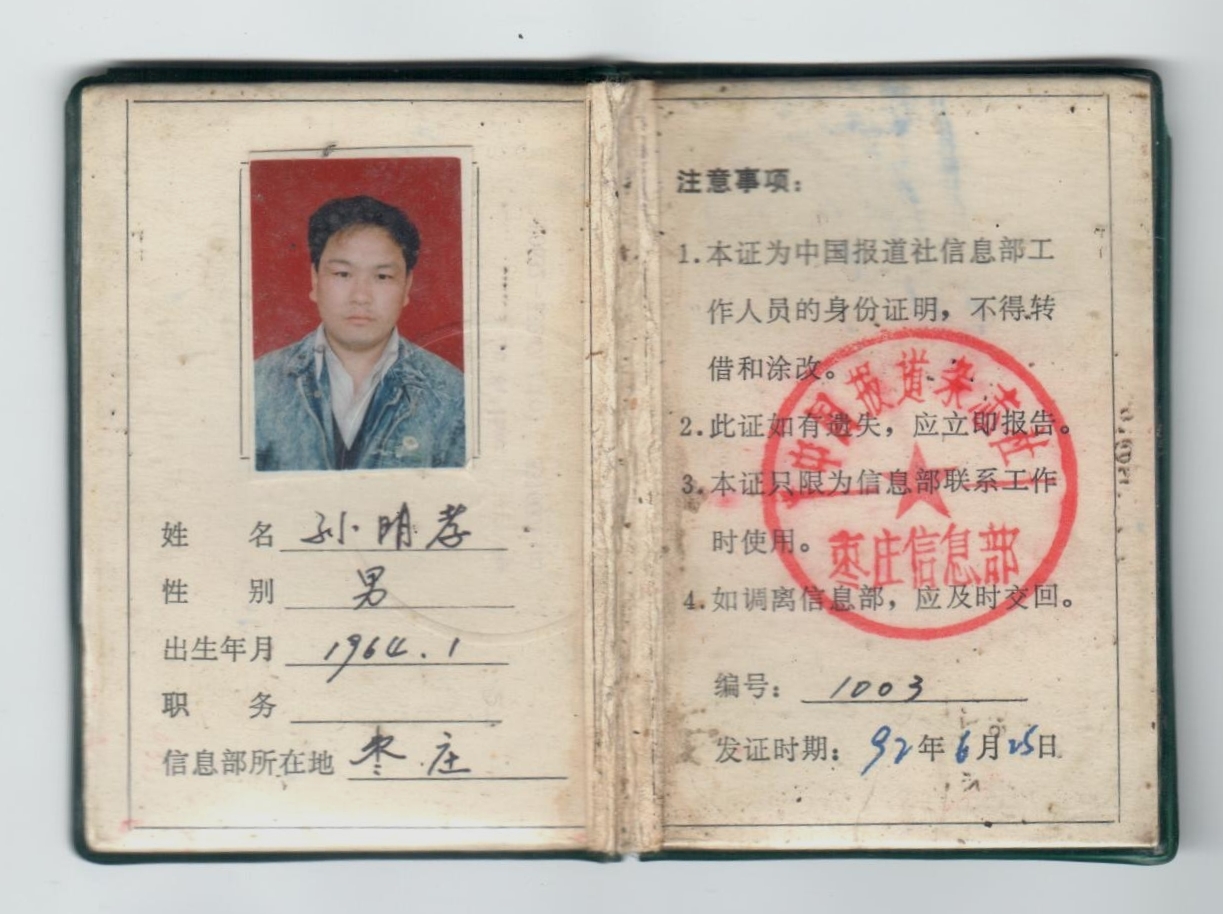 姓 名 孙明孝
性 别 男
出生年月 1964.1
职 务
信息部所在地 枣庄
注意事项：
1.本证为中国报道社信息部工
作人员的身份证明，不得转
借和涂改。
2.此证如有遗失，应立即报告。
3.本证只限为信息部联系工作
时使用。
4.如调离信息部，应及时交回。
中国报道杂志社
枣庄信息部
编号：1003
发证时期：92年6月25日